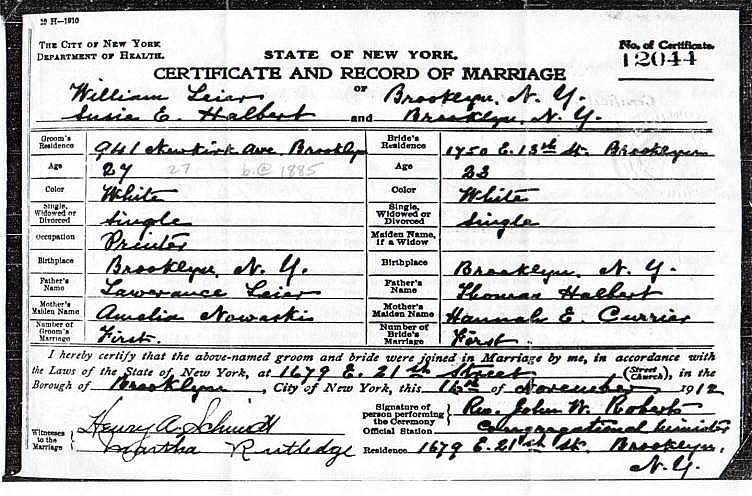 29 H-1910
THE CITY OF NEW YORK
DEPARTMENT OF HEALTH.
STATE OF NEW YORK.
No. of Certificate.
12044
CERTIFICATE AND RECORD OF MARRIAGE
OF
William Leier Brooklyn, N. Y.
Susie E. Halbert and Brooklyn, N. Y.
Groom's Residence 941 Newkirk Ave. Brooklyn
Bride's Residence 1750 E. 13th St. Brooklyn
Age 27 27 b.@ 1885
Age 23
Color White
Color White
Single, Widowed or Divorced Single
Single, Widowed or Divorced Single
Occupation Printer
Maiden Name, if a Widow
Birthplace Brooklyn, N. Y.
Birthplace Brooklyn, N. Y.
Father's Name Lawerance Leier
Father's Name Thomas Halbert
Mother's Maiden Name Amelia Nowaskis
Mother's Maiden Name Hannah E. Currier
Number of Groom's Marriage First.
Number of Bride's Marriage First.
I hereby certify that the above-named groom and bride were joined in Marriage by me, in accordance with
the Laws of the State of New York, at 1679 E. 21st Street (Street Church), in the
Borough of Brooklyn, City of New York, this 16th of November 1912
Signature of person performing the Ceremony Rev. John W. Roberts
Official Station Congregational Minister
Witnesses to the Marriage Henry A. Schmidt
Martha Rutledge
Residence 1679 E. 21st St. Brooklyn,
N. Y.